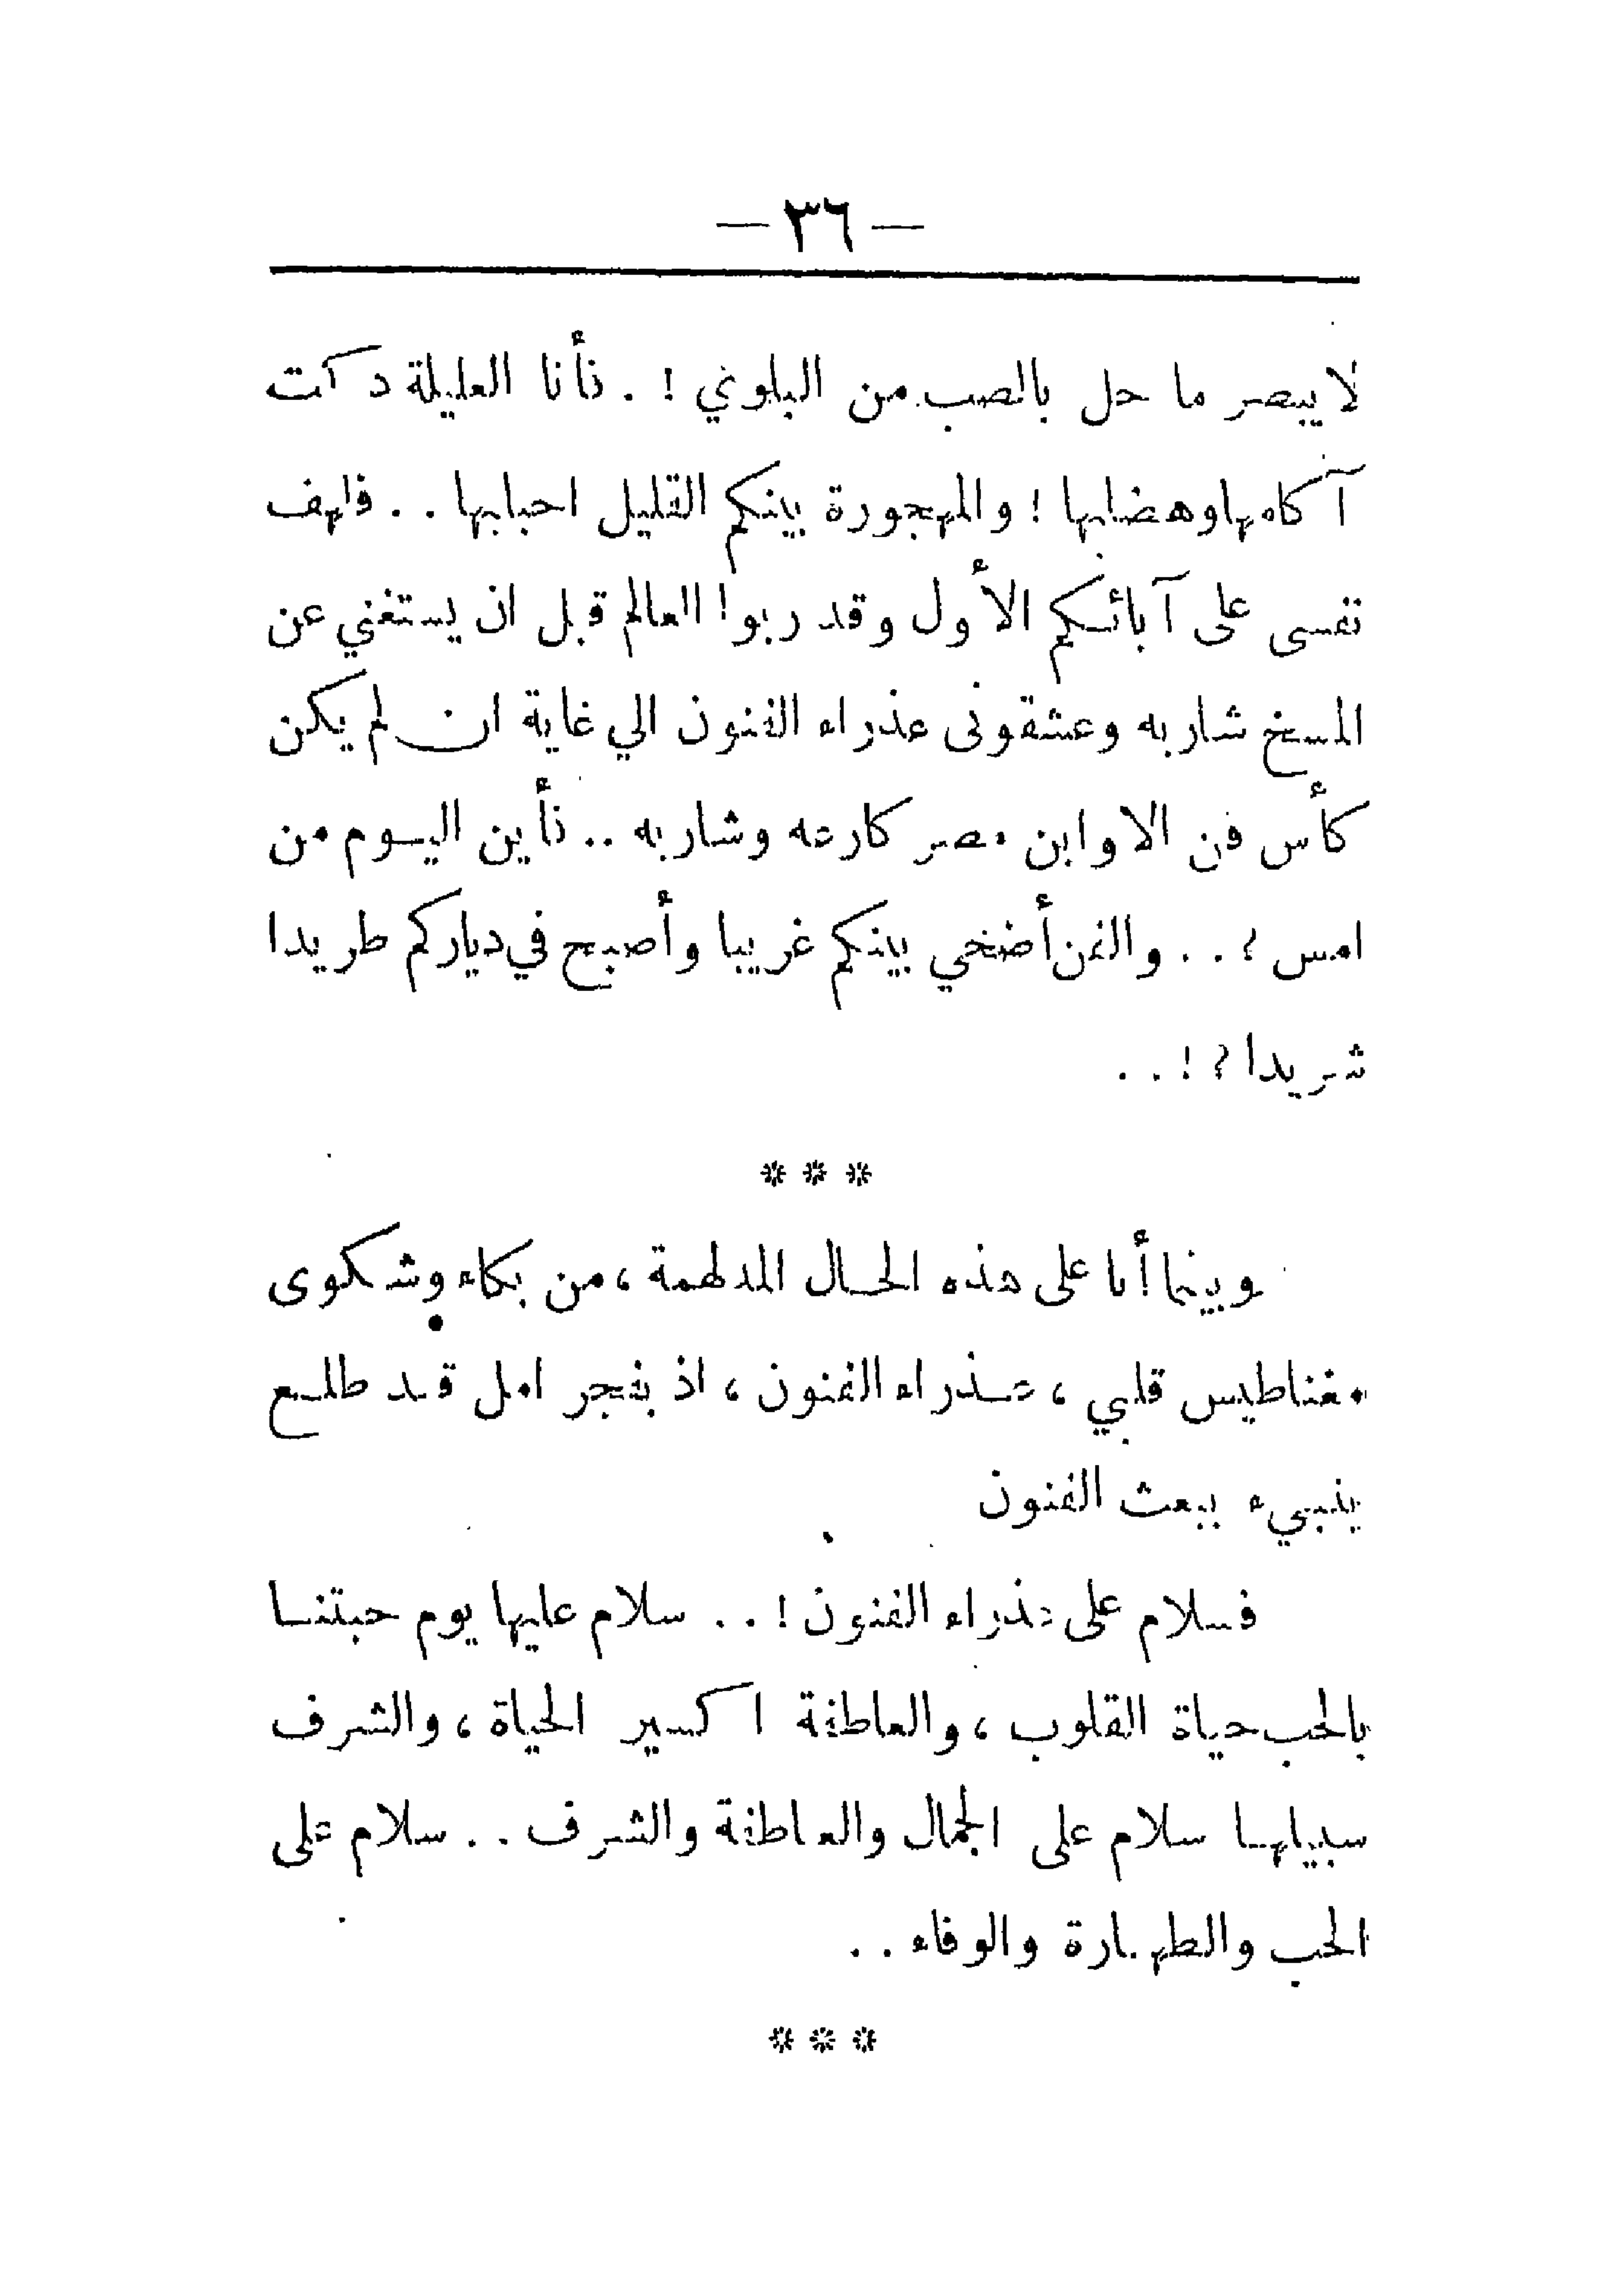 — ٣٦ —
لا يبصر ما حل بالصب من البلوي ! . فأنا العليلة دكت
آكامها وهضابها ! والمهجورة بينكم القليل احبابها . . فلهف
نفسى على آبائكم الأول وقد ربوا العالم قبل ان يستغني عن
المسخ شاربه وعشقونى عذراء الفنون الي غاية ان لم يكن
كأس فن الا وابن مصر كارعه وشاربه . . فأين اليوم من
امس ؟ . . والفن أضحي بينكم غريبا وأصبح في دياركم طريدا
شريدا ؟ ! . .
* * *
وبينما أنا على هذه الحال المدلهمة ، من بكاء وشكوى
مغناطيس قلبي ، عذراء الفنون ، اذ بفجر امل قد طلع
ينبيء ببعث الفنون
فسلام على عذراء الفنون ! . . سلام عليها يوم حبتنا
بالحب حياة القلوب ، والعاطفة اكسير الحياة ، والشرف
سبيلها سلام على الجمال والعاطفة والشرف . . سلام على
الحب والطهارة والوفاء . .
* * *